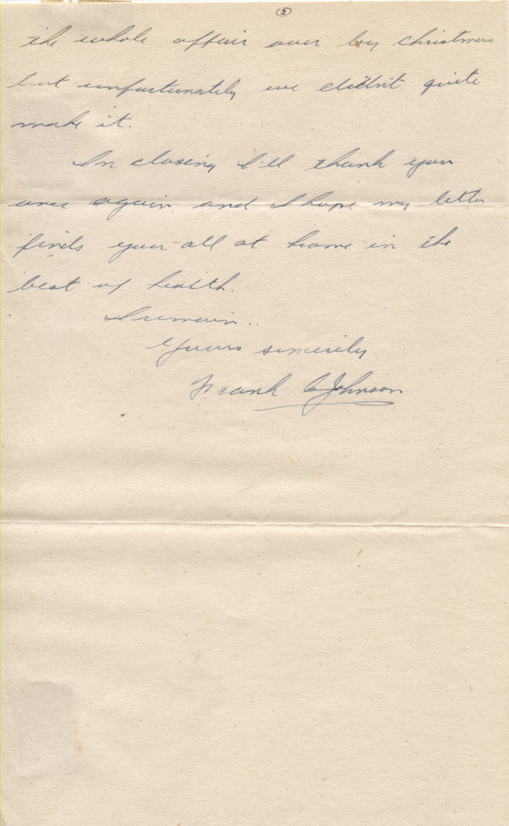 5
the whole affair over by christmas
but unfortunately we didn't quite
make it.
In closing I'll thank you
once again and I hope my letter
finds you all at home in the
best of health.
I remain..
Yours sincerely
Frank C Johnson